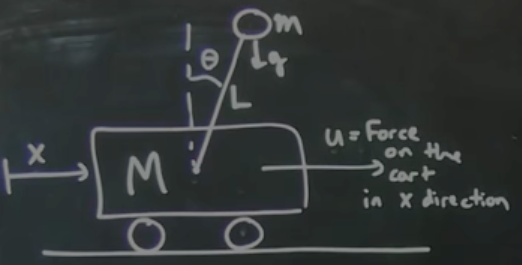 m
θ
g
L
x
M
u = Force
on the
cart
in x direction